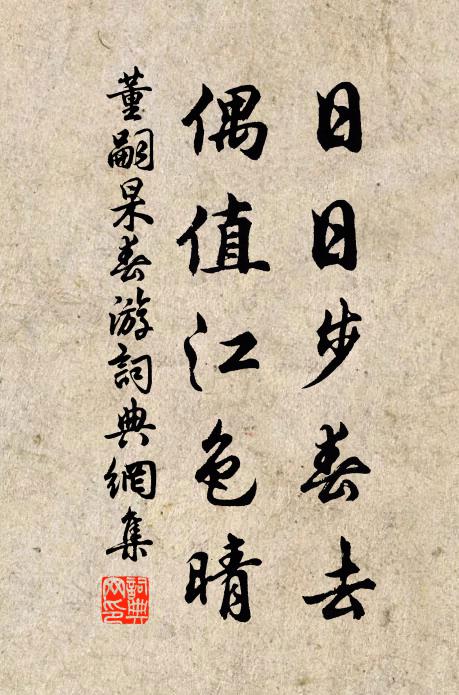 日日步春去
偶值江色晴
董嗣杲春游詞典網集
詞典網印